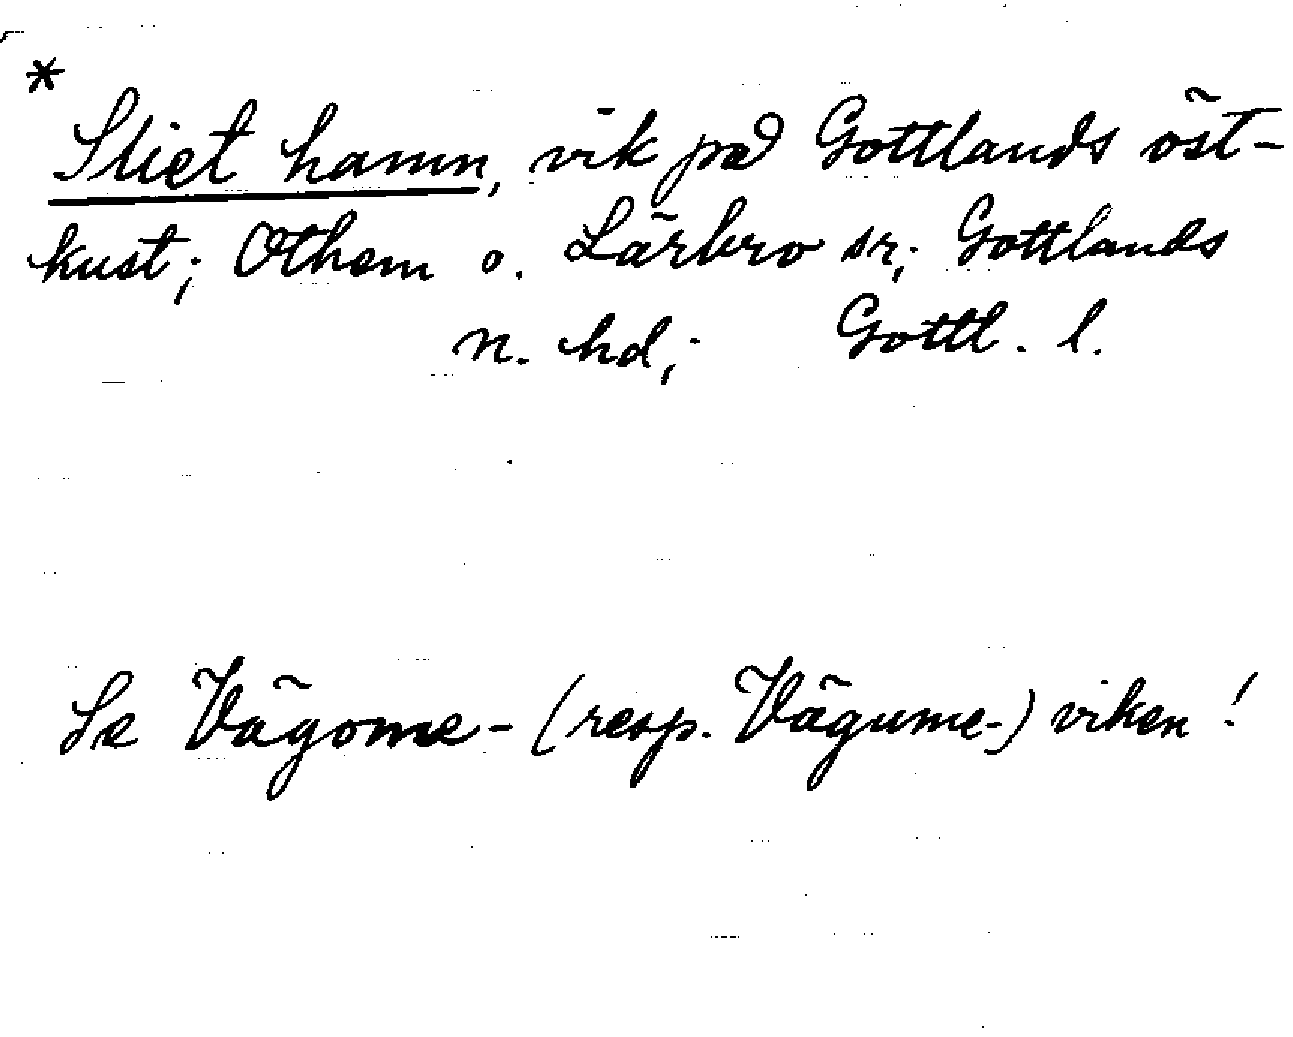 *
Sliet hamn, vik på Gottlands öst-
kust; Othem o. Lärbro sr; Gottlands
n. hd; Gottl. l.
Se Vägome- (resp. Vägume-) viken!